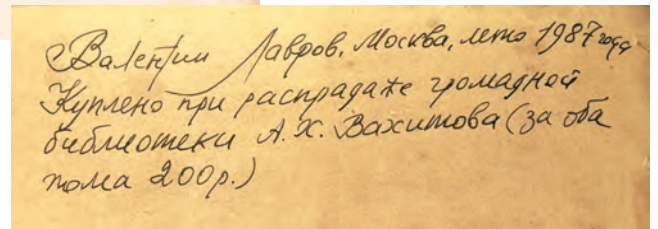 Валентин Лавров, Москва, лето 1987 года
Куплено при распрадаже громадной
библиотеки А.Х. Вахитова (за оба
тома 200р.)